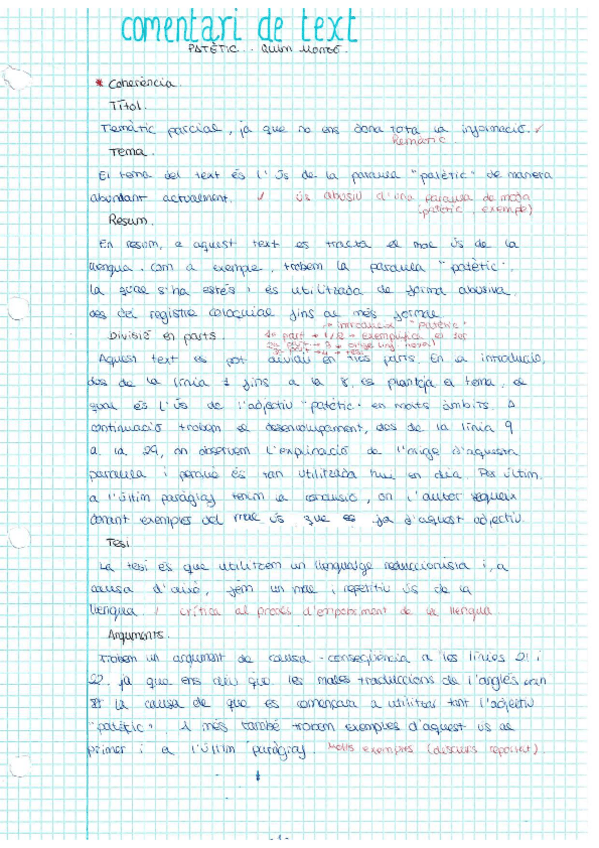 comentari de text
PATÈTIC. Quim Monzó.
* Coherència.
Títol.
Temàtic parcial, ja que no ens dona tota la informació. ✓
Remàtic.
Tema.
El tema del text és l'ús de la paraula "patètic" de manera
abundant actualment. ✓ ús abusiu d'una paraula de moda
(patètic, exemple)
Resum.
En resum, a aquest text es tracta el mal ús de la
llengua. Com a exemple, trobem la paraula "patètic",
la qual s'ha estès i és utilitzada de forma abusiva,
des del registre col·loquial fins al més formal.
introducció "patètic"
Divisió en parts. 1a part → 1/2 → exemplifica
Aquest text es pot dividir en tres parts. En la introducció,
des de la línia 1 fins a la 8, es planteja el tema, el
qual és l'ús de l'adjectiu "patètic" en molts àmbits. A
continuació trobem el desenvolupament, des de la línia 9
a la 29, on observem l'explicació de l'origen d'aquesta
paraula i perquè és tan utilitzada hui en dia. Per últim,
a l'últim paràgraf tenim la conclusió, on l'autor segueix
donant exemples del mal ús que es fa d'aquest adjectiu.
Tesi
La tesi és que utilitzem un llenguatge reduccionista i, a
causa d'això, fem un mal i repetitiu ús de la
llengua. / crítica al procés d'empobriment de la llengua
Arguments.
Trobem un argument de causa-conseqüència a les línies 21 i
22, ja que ens diu que les males traduccions de l'anglés eren
la causa de que es començara a utilitzar tant l'adjectiu
"patètic". A més també trobem exemples d'aquest ús al
primer i a l'últim paràgraf. Molts exemples (discurs repetit)
-1-